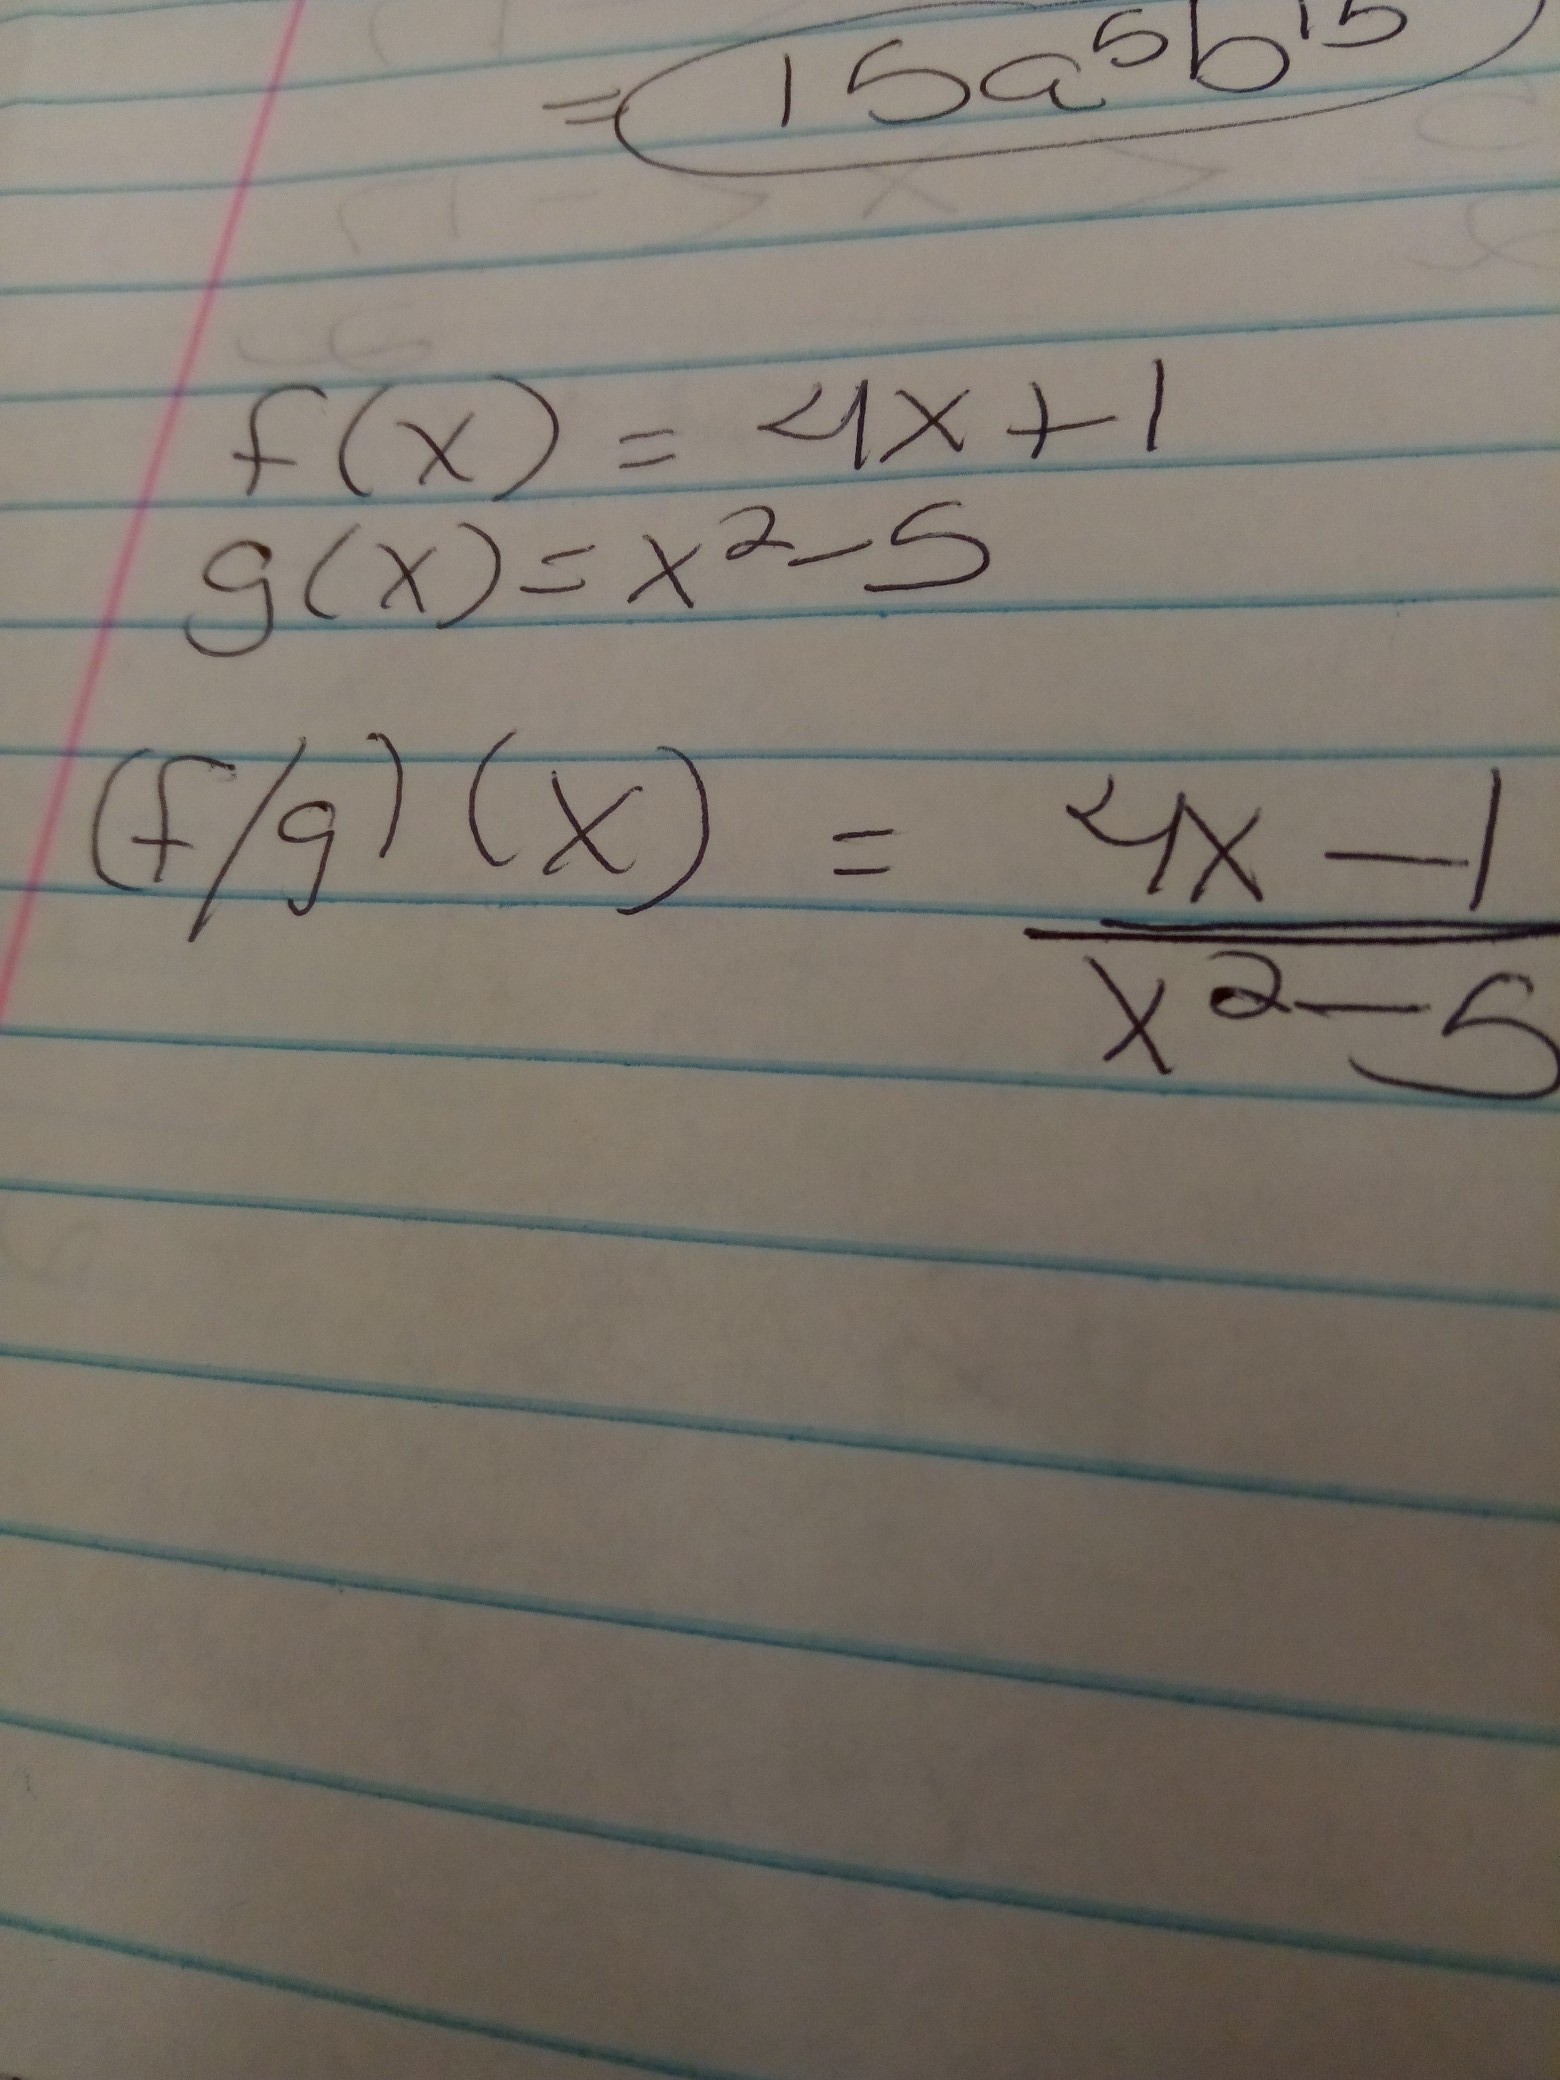 = 15a⁵b¹⁵
f(x) = 4x+1
g(x) = x²-5
(f/g)(x) = 4x-1
x²-5